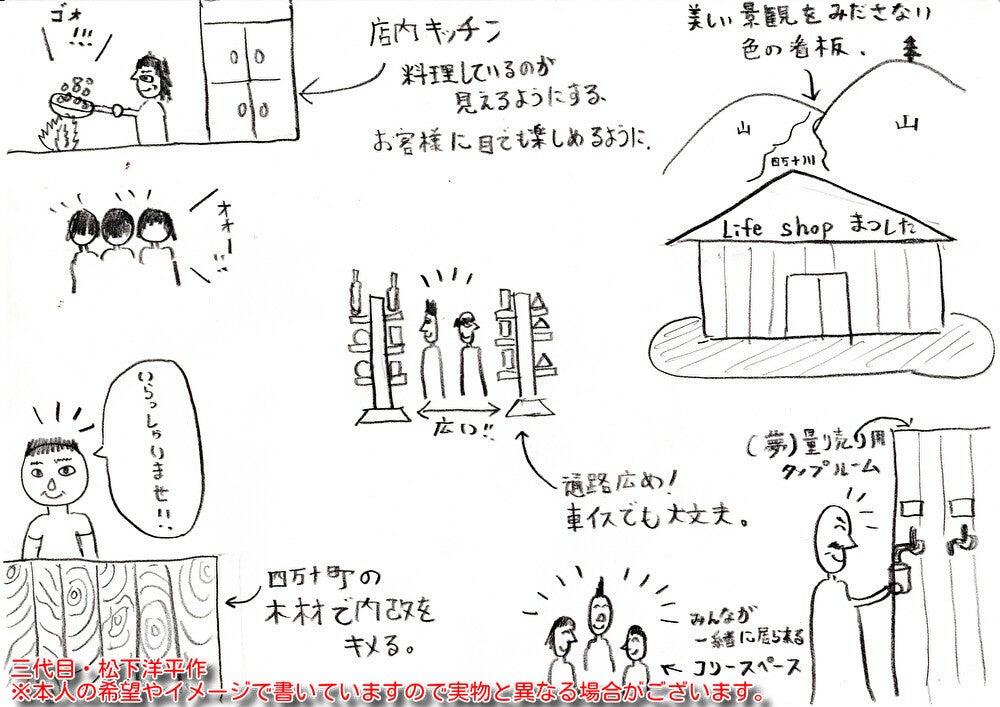 ゴォ
!!!
店内キッチン
料理しているのが
見えるようにする、
お客様に目でも楽しめるように.
美しい景観をみださない
色の看板.
山
山
四万十川
Life shop まつした
オォー!!
広い!!
通路広め!
車イスでも大丈夫。
いらっしゃいませ!!
四万十町の
木材で内改を
キメる。
(夢)量り売り用
タップルーム
みんなが
一緒に居られる
フリースペース
三代目・松下洋平作
※本人の希望やイメージで書いていますので実物と異なる場合がございます。